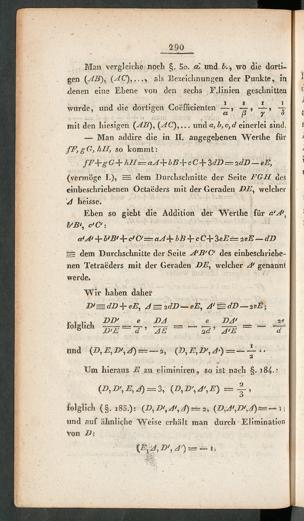 290
Man vergleiche noch §. 50. a. und b., wo die dorti-
gen (AB), (AC),..., als Bezeichnungen der Punkte, in
denen eine Ebene von den sechs F.linien geschnitten
wurde, und die dortigen Coëfficienten 1/α, 1/β, 1/γ, 1/δ
mit den hiesigen (AB), (AC),... und a, b, c, d einerlei sind.
— Man addire die in II. angegebenen Werthe für
fF, gG, hH, so kommt:
fF+gG+hH=aA+bB+cC+3dD=2dD—eE,
(vermöge I.), ≡ dem Durchschnitte der Seite FGH des
einbeschriebenen Octaëders mit der Geraden DE, welcher
A heisse.
Eben so giebt die Addition der Werthe für a'A',
b'B', c'C':
a'A'+b'B'+c'C'=aA+bB+cC+3eE=2eE—dD
≡ dem Durchschnitte der Seite A'B'C' des einbeschrie-
benen Tetraëders mit der Geraden DE, welcher A' genannt
werde.
Wir haben daher
D'≡dD+eE, A≡2dD—eE, A'≡dD—2eE;
folglich DD'/D'E = e/d, DA/AE = — e/2d, DA'/A'E = — 2e/d
und (D, E, D', A)=—2, (D, E, D', A')=—1/2.
Um hieraus E zu eliminiren, so ist nach §. 184.:
(D, D', E, A)=3, (D, D', A', E) = 2/3,
folglich (§. 185.): (D, D', A', A)=2, (D, A', D', A)=—1;
und auf ähnliche Weise erhält man durch Elimination
von D:
(E, A, D', A')=—1.